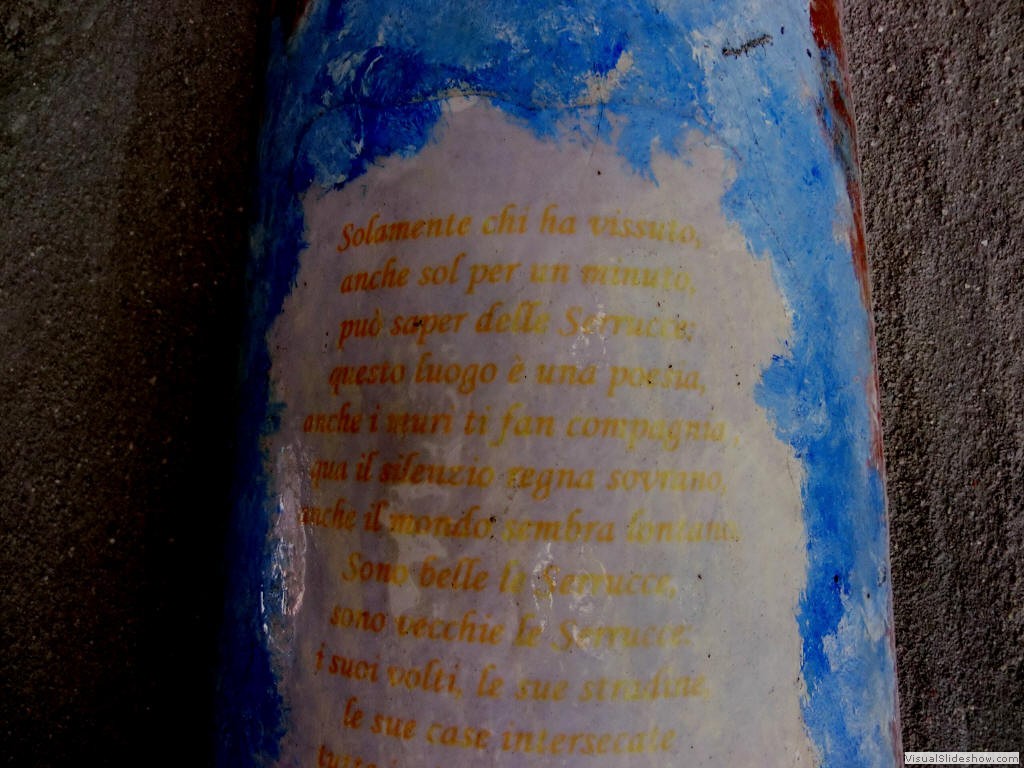 Solamente chi ha vissuto,
anche sol per un minuto,
può saper delle Serrucce:
questo luogo è una poesia,
anche i muri ti fan compagnia,
qua il silenzio regna sovrano,
anche il mondo sembra lontano.
Sono belle le Serrucce,
sono vecchie le Serrucce:
i suoi volti, le sue stradine,
le sue case intersecate
VisualSlideshow.com